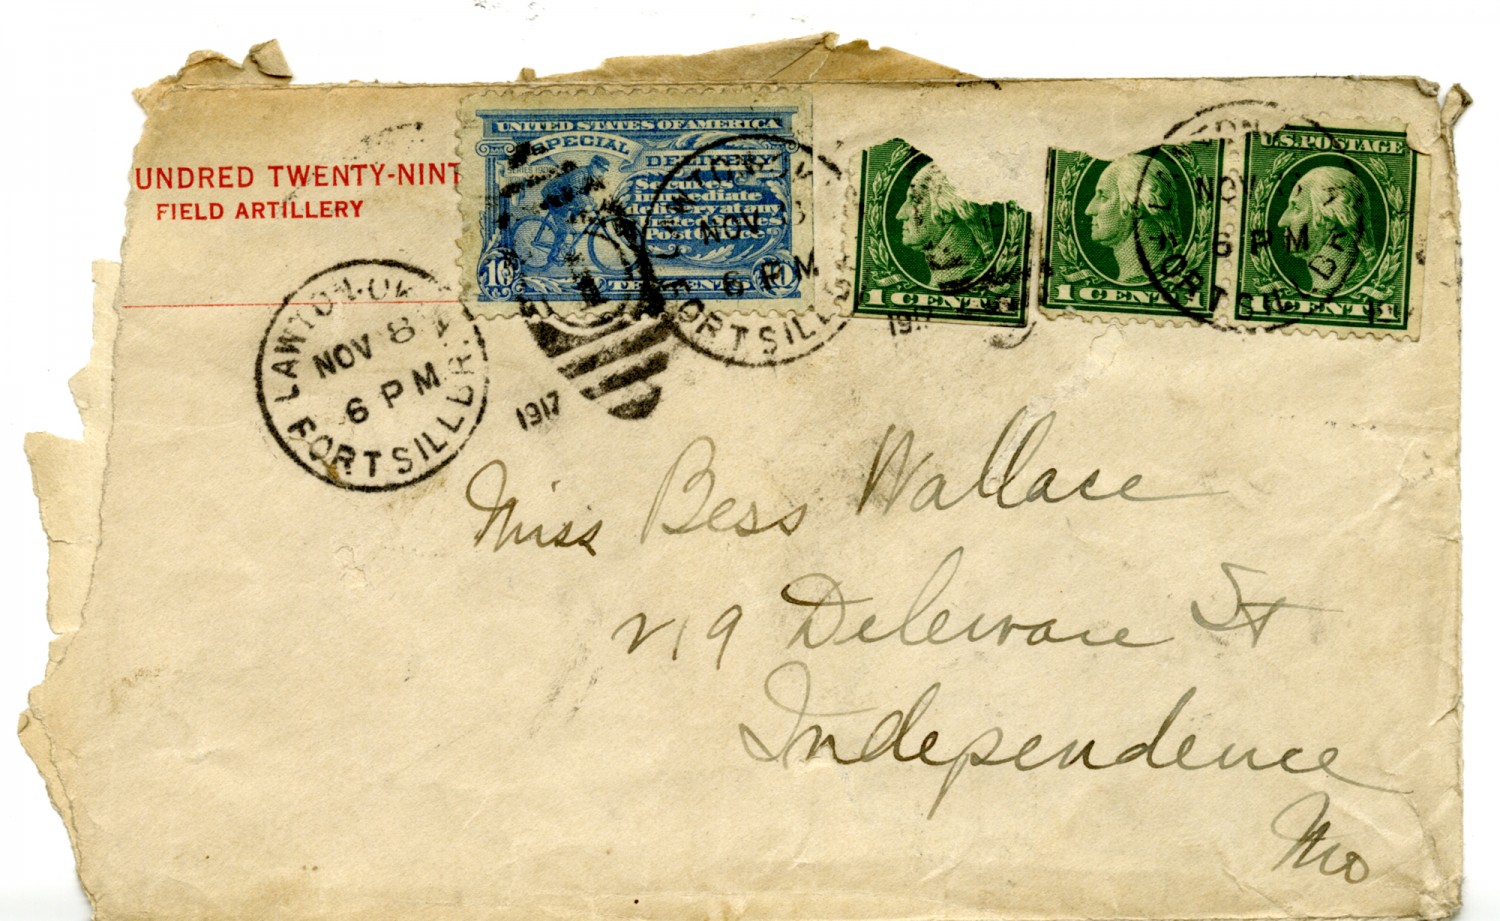 UNDRED TWENTY-NINT
FIELD ARTILLERY
UNITED STATES OF AMERICA
SPECIAL DELIVERY
Secures
immediate
delivery at any
Post Office
10 TEN CENTS 10
LAWTON-OK
NOV 8
6 PM
FORT SILL BR.
1917
NOV 8
6 PM
FORT SILL
1 CENT
1917
1 CENT 1
U.S. POSTAGE
1 CENT 1
NOV
6 PM
FORT SILL
Miss Bess Wallace
219 Deleware St
Independence
Mo